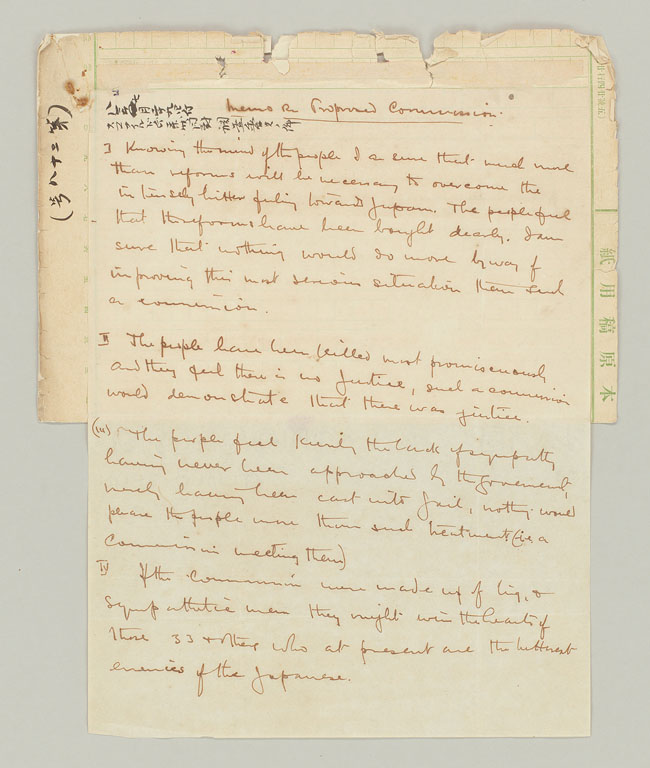 Memo re Proposed Commission.
I Knowing the mind of the people I am sure that much more
than reforms will be necessary to overcome the
intensely bitter feeling towards Japan. The people feel
that the reforms have been bought dearly. I am
sure that nothing would do more by way of
improving this most serious situation than such
a commission.
II The people have been killed most promiscuously
and they feel there is no Justice, such a commission
would demonstrate that there was justice.
(III) The people feel keenly the lack of sympathy
having never been approached by the government,
merely having been cast into jail, nothing would
please the people more than such treatment (i.e. a
commission meeting them)
IV If the Commission were made up of big, &
sympathetic men they might win the hearts of
those 33 & others who at present are the bitterest
enemies of the Japanese.
(第八十二号)
本原稿用紙